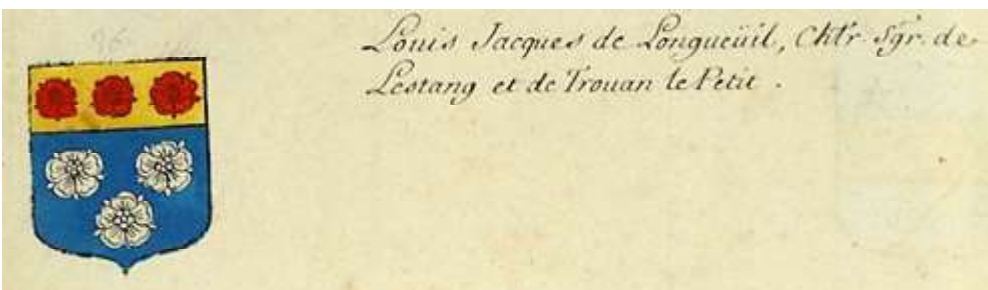 Louis Jacques de Longueüil, Chlr. Sgr. de
Lestang et de Trouan le Petit .